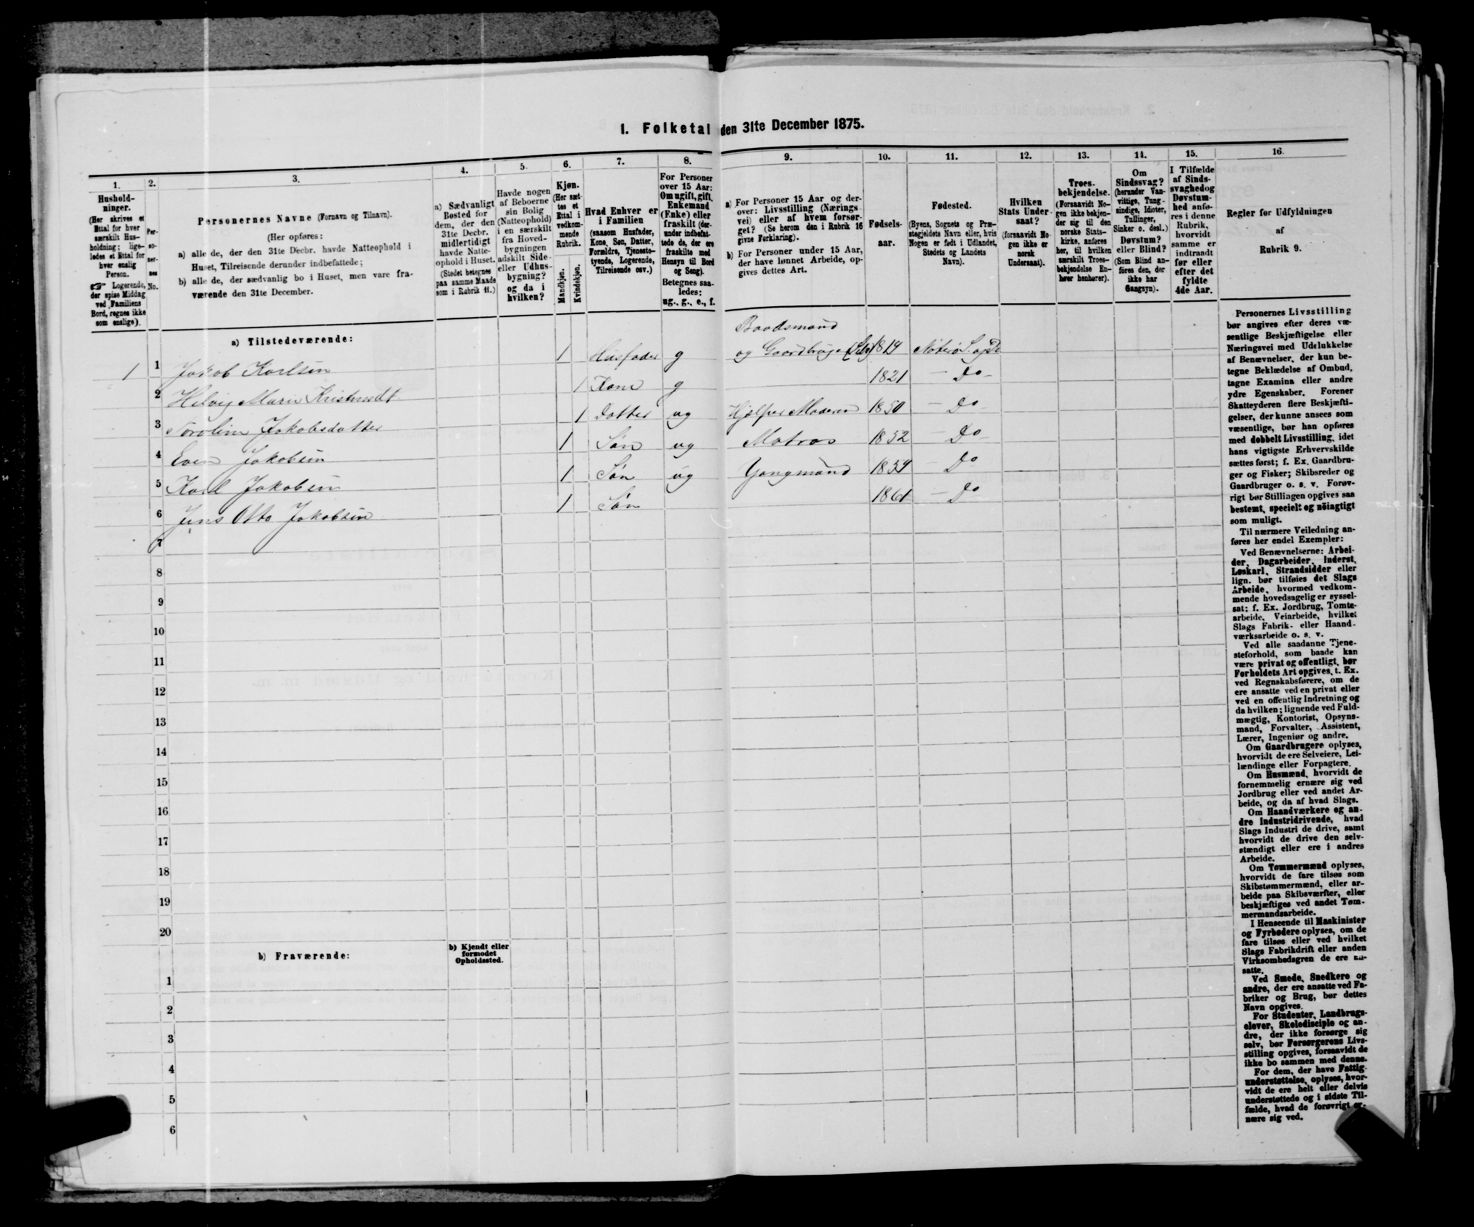 1. Folketal den 31te December 1875.
1.
Hushold-
ninger.
(Her skrives et
Ettal for hver
særskilt Hus-
holdning; lige-
ledes et Ettal for
hver enslig
Person.
☞ Logerende,
der spise Middag
ved Familiens
Bord, regnes ikke
som enslige).
2.
Per-
so-
ner-
nes
No.
3.
Personernes Navne (Fornavn og Tilnavn).
(Her opføres:
a) alle de, der den 31te Decbr. havde Natteophold i
Huset, Tilreisende derunder indbefattede;
b) alle de, der sædvanlig bo i Huset, men vare fra-
værende den 31te December.
4.
a) Sædvanligt
Bosted for
dem, der den
31te Decbr.
midlertidigt
havde Natte-
ophold i Huset.
(Stedet betegnes
paa samme Maade
som i Rubrik 11.)
5.
Havde nogen
af Beboerne
sin Bolig
(Natteophold)
i en særskilt
fra Hoved-
bygningen
adskilt Side-
eller Udhus-
bygning?
og da i
hvilken?
6.
Kjøn.
(Her sæt-
tes et
Ettal i
vedkom-
mende
Rubrik.
Mandkjøn.
Kvindekjøn.
7.
Hvad Enhver er
i Familien
(saasom Husfader,
Kone, Søn, Datter,
Forældre, Tjeneste-
tyende, Logerende,
Tilreisende osv.)
8.
For Personer
over 15 Aar:
Om ugift, gift,
Enkemand
(Enke) eller
fraskilt (der-
under indbefat-
tede de, der ere
fraskilte med
Hensyn til Bord
og Seng).
Betegnes saa-
ledes:
ug., g., e., f.
9.
a) For Personer 15 Aar og der-
over: Livsstilling (Nærings-
vei) eller af hvem forsør-
get? (Se herom den i Rubrik 16
givne Forklaring).
b) For Personer under 15 Aar,
der have lønnet Arbeide, op-
gives dettes Art.
10.
Fødsels-
aar.
11.
Fødested.
(Byens, Sognets og Præ-
stegjeldets Navn eller, hvis
Nogen er født i Udlandet,
Stedets og Landets
Navn).
12.
Hvilken
Stats Under-
saat?
(forsaavidt No-
gen ikke er
norsk
Undersaat).
13.
Troes-
bekjendelse.
(Forsaavidt No-
gen ikke bekjen-
der sig til den
norske Stats-
kirke, anføres
her, til hvilken
særskilt Troes-
bekjendelse En-
hver henhører).
14.
Om
Sindssvag?
(herunder Van-
vittige, Tung-
sindige, Idioter,
Tullinger,
Sinker o. desl.)
Døvstum?
eller Blind?
(Som Blind an-
føres den, der
ikke har
Gangsyn).
15.
I Tilfælde
af Sinds-
svaghed og
Døvstum-
hed anfø-
res i denne
Rubrik,
hvorvidt
samme er
indtraadt
før eller
efter det
fyldte
4de Aar.
16.
Regler for Udfyldningen
af
Rubrik 9.
a) Tilstedeværende:
1 1 Jakob Karlsen 1 Husfader g Baadsmand
og Gaardbruger 1819
2 Helvig Marie 1 Kone g 1821 — Do
3 Jakobsdatter 1 Datter ug Hjelper Moderen 1850 — Do
4 Even Jakobsen 1 Søn ug Matros 1852 — Do
5 Karl Jakobsen 1 Søn ug Yongmand 1859 — Do
6 Jens Otto Jakobsen 1 Søn 1861 — Do
7
8
9
10
11
12
13
14
15
16
17
18
19
20
b) Fraværende:
b) Kjendt eller
formodet
Opholdssted.
1
2
3
4
5
6
Personernes Livsstilling
bør angives efter deres væ-
sentlige Beskjæftigelse eller
Næringsvei med Udelukkelse
af Benævnelser, der kun be-
tegne Beklædelse af Ombud,
tagne Examina eller andre
ydre Egenskaber. Forener
Skatteyderen flere Beskjæfti-
gelser, der kunne ansees som
væsentlige, bør han opføres
med dobbelt Livsstilling, idet
hans vigtigste Erhvervskilde
sættes først; f. Ex. Gaardbru-
ger og Fisker; Skibsreder og
Gaardbruger o. s. v. Forøv-
rigt bør Stillingen opgives saa
bestemt, specielt og nöiagtigt
som muligt.
Til nærmere Veiledning an-
føres her endel Exempler:
Ved Benævnelserne: Arbei-
der, Dagarbeider, Inderst,
Løskarl, Strandsidder eller
lign. bør tilføies det Slags
Arbeide, hvormed vedkom-
mende hovedsagelig er syssel-
sat; f. Ex. Jordbrug, Tomte-
arbeide, Veiarbeide, hvilket
Slags Fabrik- eller Haand-
værksarbeide o. s. v.
Ved alle saadanne Tjene-
steforhold, som baade kan
være privat og offentligt, bør
Forholdets Art opgives, t. Ex.
ved Regnskabsførere, om de
ere ansatte ved en privat eller
ved en offentlig Indretning og
da hvilken; lignende ved Fuld-
mægtig, Kontorist, Opsyns-
mand, Forvalter, Assistent,
Lærer, Ingeniør og andre.
Om Gaardbrugere oplyses,
hvorvidt de ere Selveiere, Lei-
lændinge eller Forpagtere.
Om Husmænd, hvorvidt de
fornemmelig ernære sig ved
Jordbrug eller ved andet Ar-
beide, og da af hvad Slags.
Om Haandværkere og an-
dre Industridrivende, hvad
Slags Industri de drive, samt
hvorvidt de drive den selv-
stændigt eller ere i andres
Arbeide.
Om Tømmermænd oplyses,
hvorvidt de fare tilsøs som
Skibstømmermænd, eller ar-
beide paa Skibsværfter, eller
beskjæftiges ved andet Tøm-
mermandsarbeide.
I Henseende til Maskinister
og Fyrbødere oplyses, om de
fare tilsøs eller ved hvilket
Slags Fabrikdrift eller anden
Virksomhedsgren de ere an-
satte.
Ved Smede, Snedkere og
andre, der ere ansatte ved Fa-
briker og Brug, bør dettes
Navn opgives.
For Studenter, Landbrugs-
elever, Skoledisciple og an-
dre, der ikke forsørge sig
selv, bør Forsørgerens Livs-
stilling opgives, forsaavidt de
ikke bo sammen med denne.
For dem, der have Fattig-
understøttelse, oplyses, hvor-
vidt de ere helt eller delvis
understøttede og i sidste Til-
fælde, hvad de forøvrigt er-
nære sig ved.